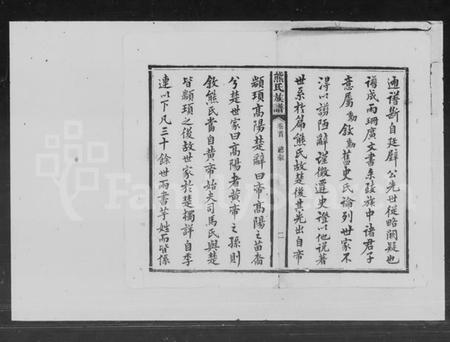 通譜斷自廷辟公先世從略闕疑也
譜成兩珊廣文書來諗族中諸君子
意屬勵敘勵舊史氏論列世家不
得以謭陋辭謹徵遷史證以他說著
世系於篇熊氏故楚後其先出自帝
熊氏族譜 卷首 總敘 二
顓頊高陽楚辭曰帝高陽之苗裔
兮楚世家曰高陽者黃帝之孫則
敘熊氏當自黃帝始夫司馬氏與楚
皆顓頊之後故世家於楚獨詳自季
連以下凡三十餘世而書芈姓而皆係
FamilySearch